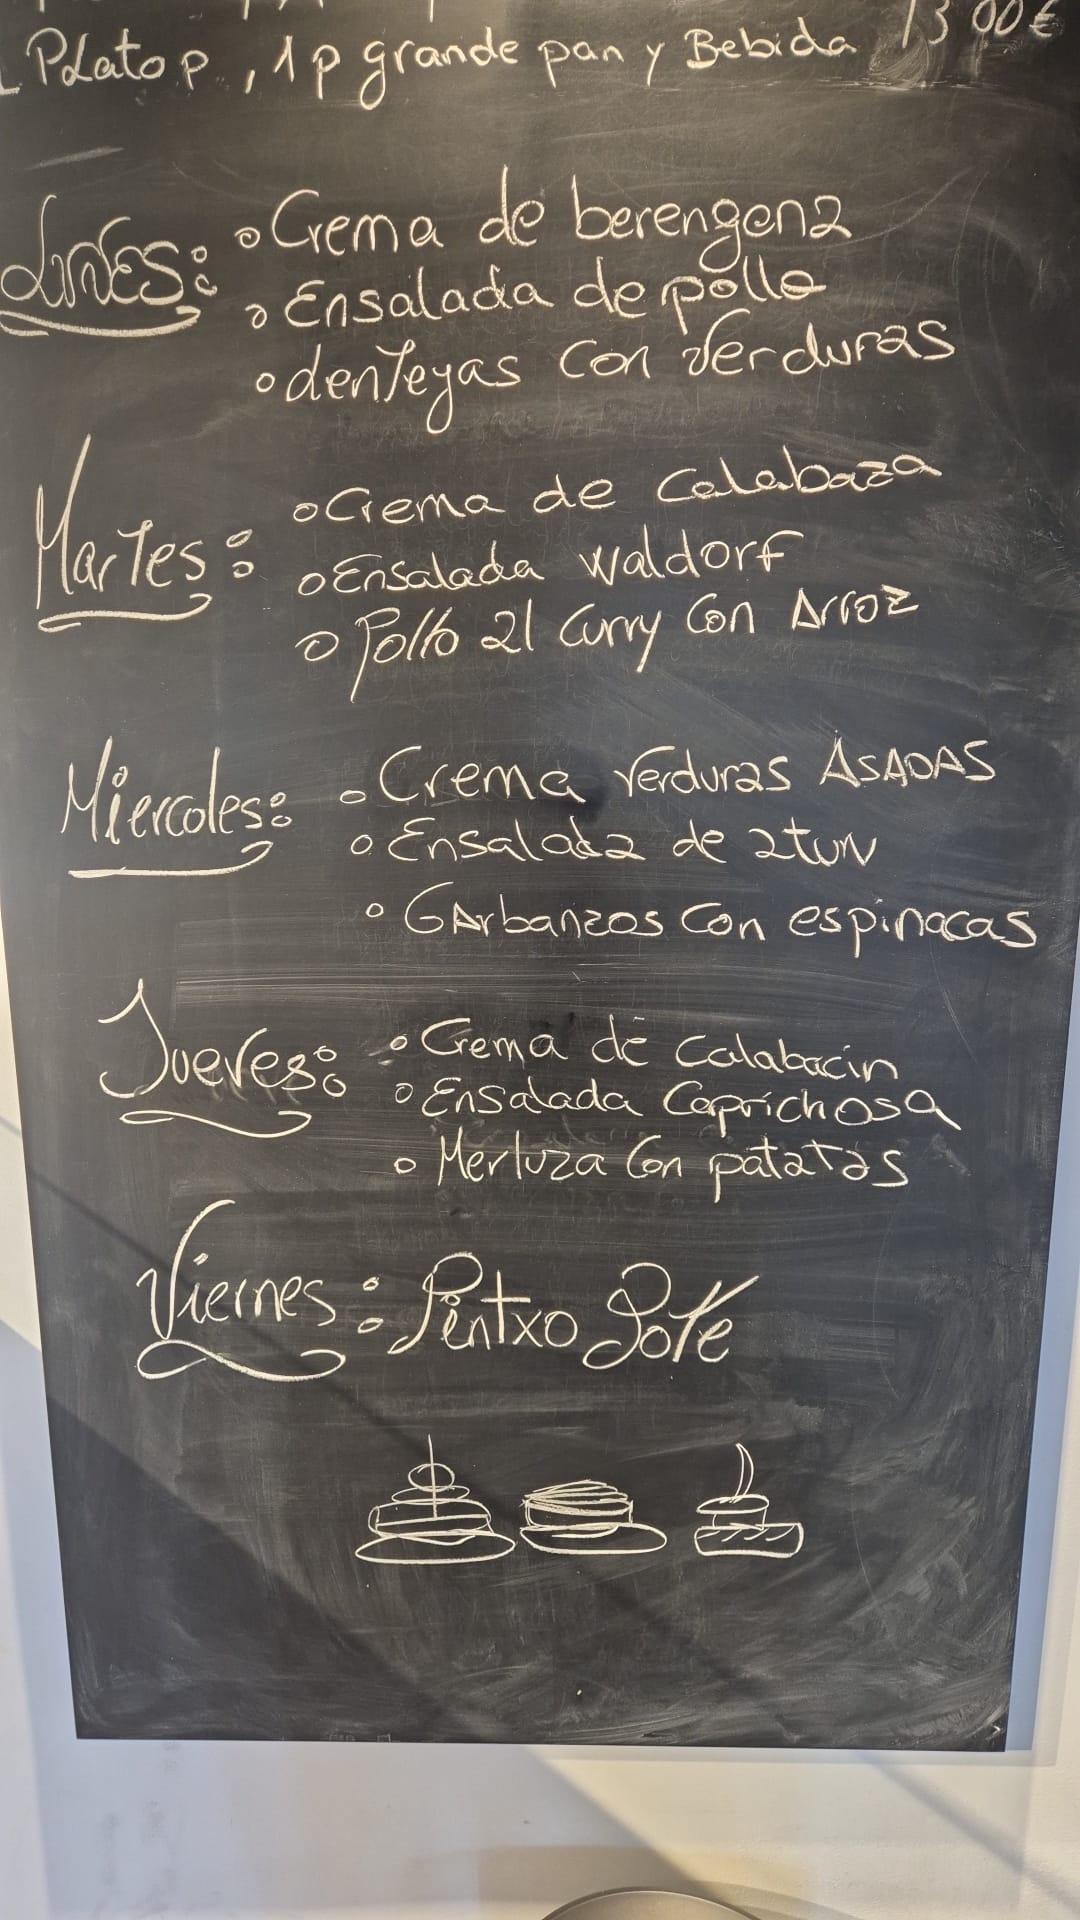 Plato p, 1 p grande pan y Bebida 13 00€
Lunes: Crema de berengena
Ensalada de pollo
Lenteyas con verduras
Martes: Crema de Calabaza
Ensalada Waldorf
Pollo al Curry Con Arroz
Miercoles: Crema verduras ASADAS
Ensalada de atun
GArbanzos Con espinacas
Jueves: Crema de Calabacin
Ensalada Caprichosa
Merluza Con patatas
Viernes: Pintxo Pote